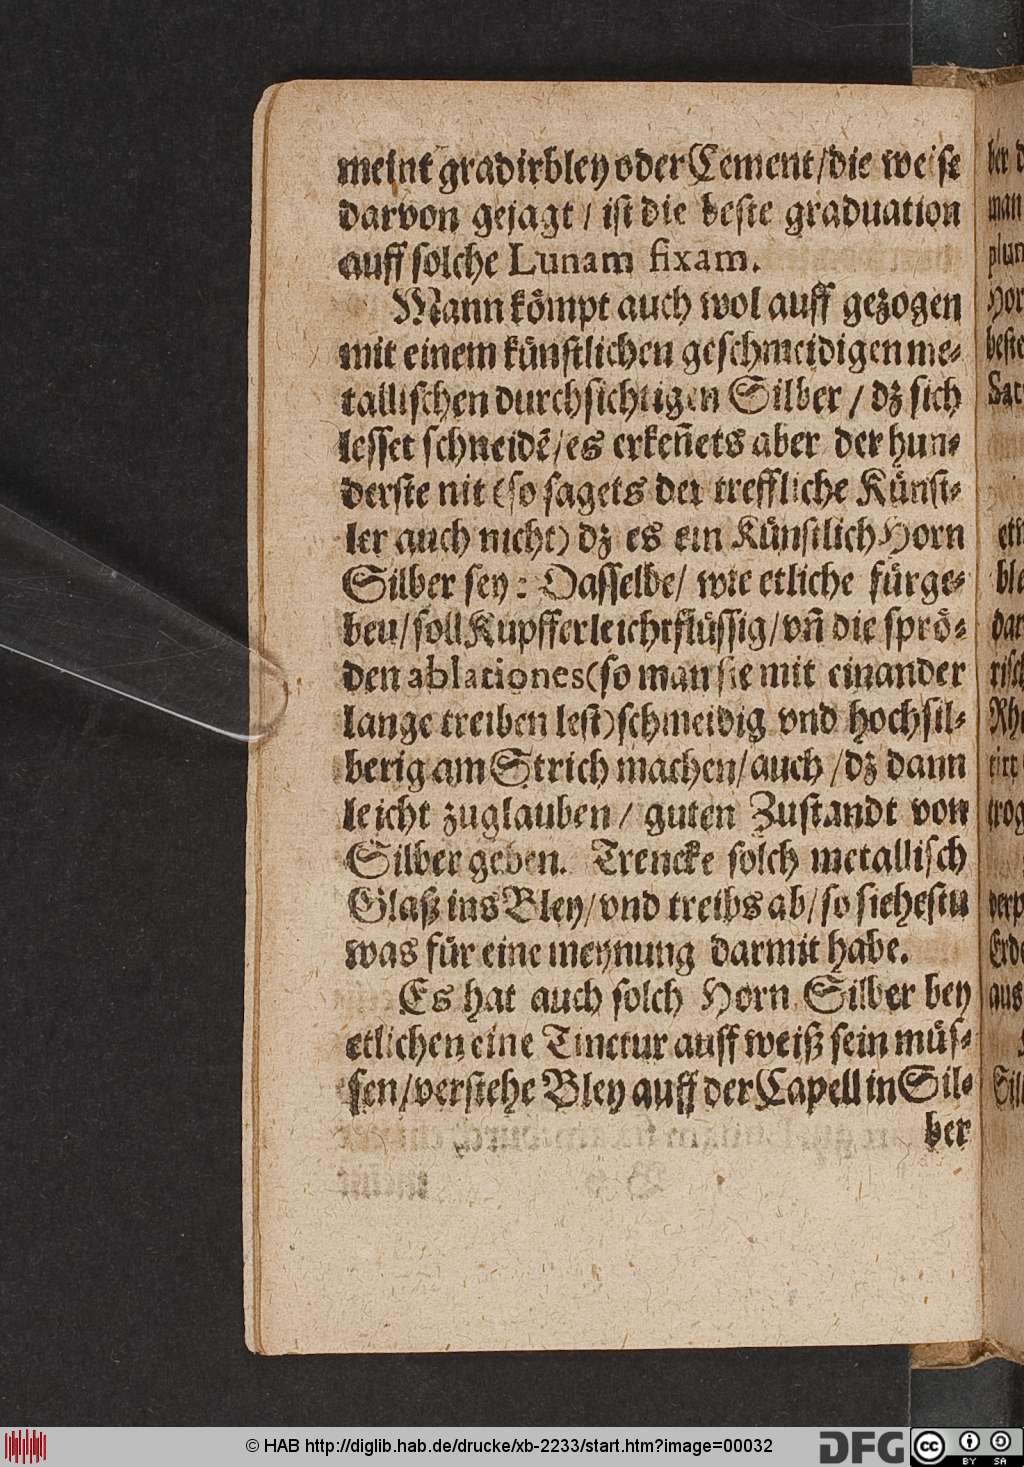 meint gradirbley oder Cement/die weise
darvon gejagt / ist die beste graduation
auff solche Lunam fixam.
Mann kömpt auch wol auff gezogen
mit einem künstlichen geschmeidigen me-
tallischen durchsichtigen Silber / dz sich
lesset schneidē/es erkeñets aber der hun-
derste nit (so sagets der treffliche Künst-
ler auch nicht) dz es ein Künstlich Horn
Silber sey: Dasselbe/ wie etliche fürge-
ben/soll Kupffer leichtflüssig/vñ die sprö-
den ablationes (so man sie mit einander
lange treiben lest) schmeidig vnd hochsil-
berig am Strich machen/auch /dz dann
leicht zuglauben/ guten Zustandt von
Silber geben. Trencke solch metallisch
Glaß ins Bley/vnd treibs ab/so siehestu
was für eine meynung darmit habe.
Es hat auch solch Horn Silber bey
etlichen eine Tinctur auff weiß sein müs-
sen/verstehe Bley auff der Capell in Sil-
ber
ber d
man
plum
Hor
beste
Sat
etli
ble
dar
risch
Rhe
tirt
trog
derp
Erde
aus
Sil
© HAB http://diglib.hab.de/drucke/xb-2233/start.htm?image=00032
DFG
cc
BY
SA